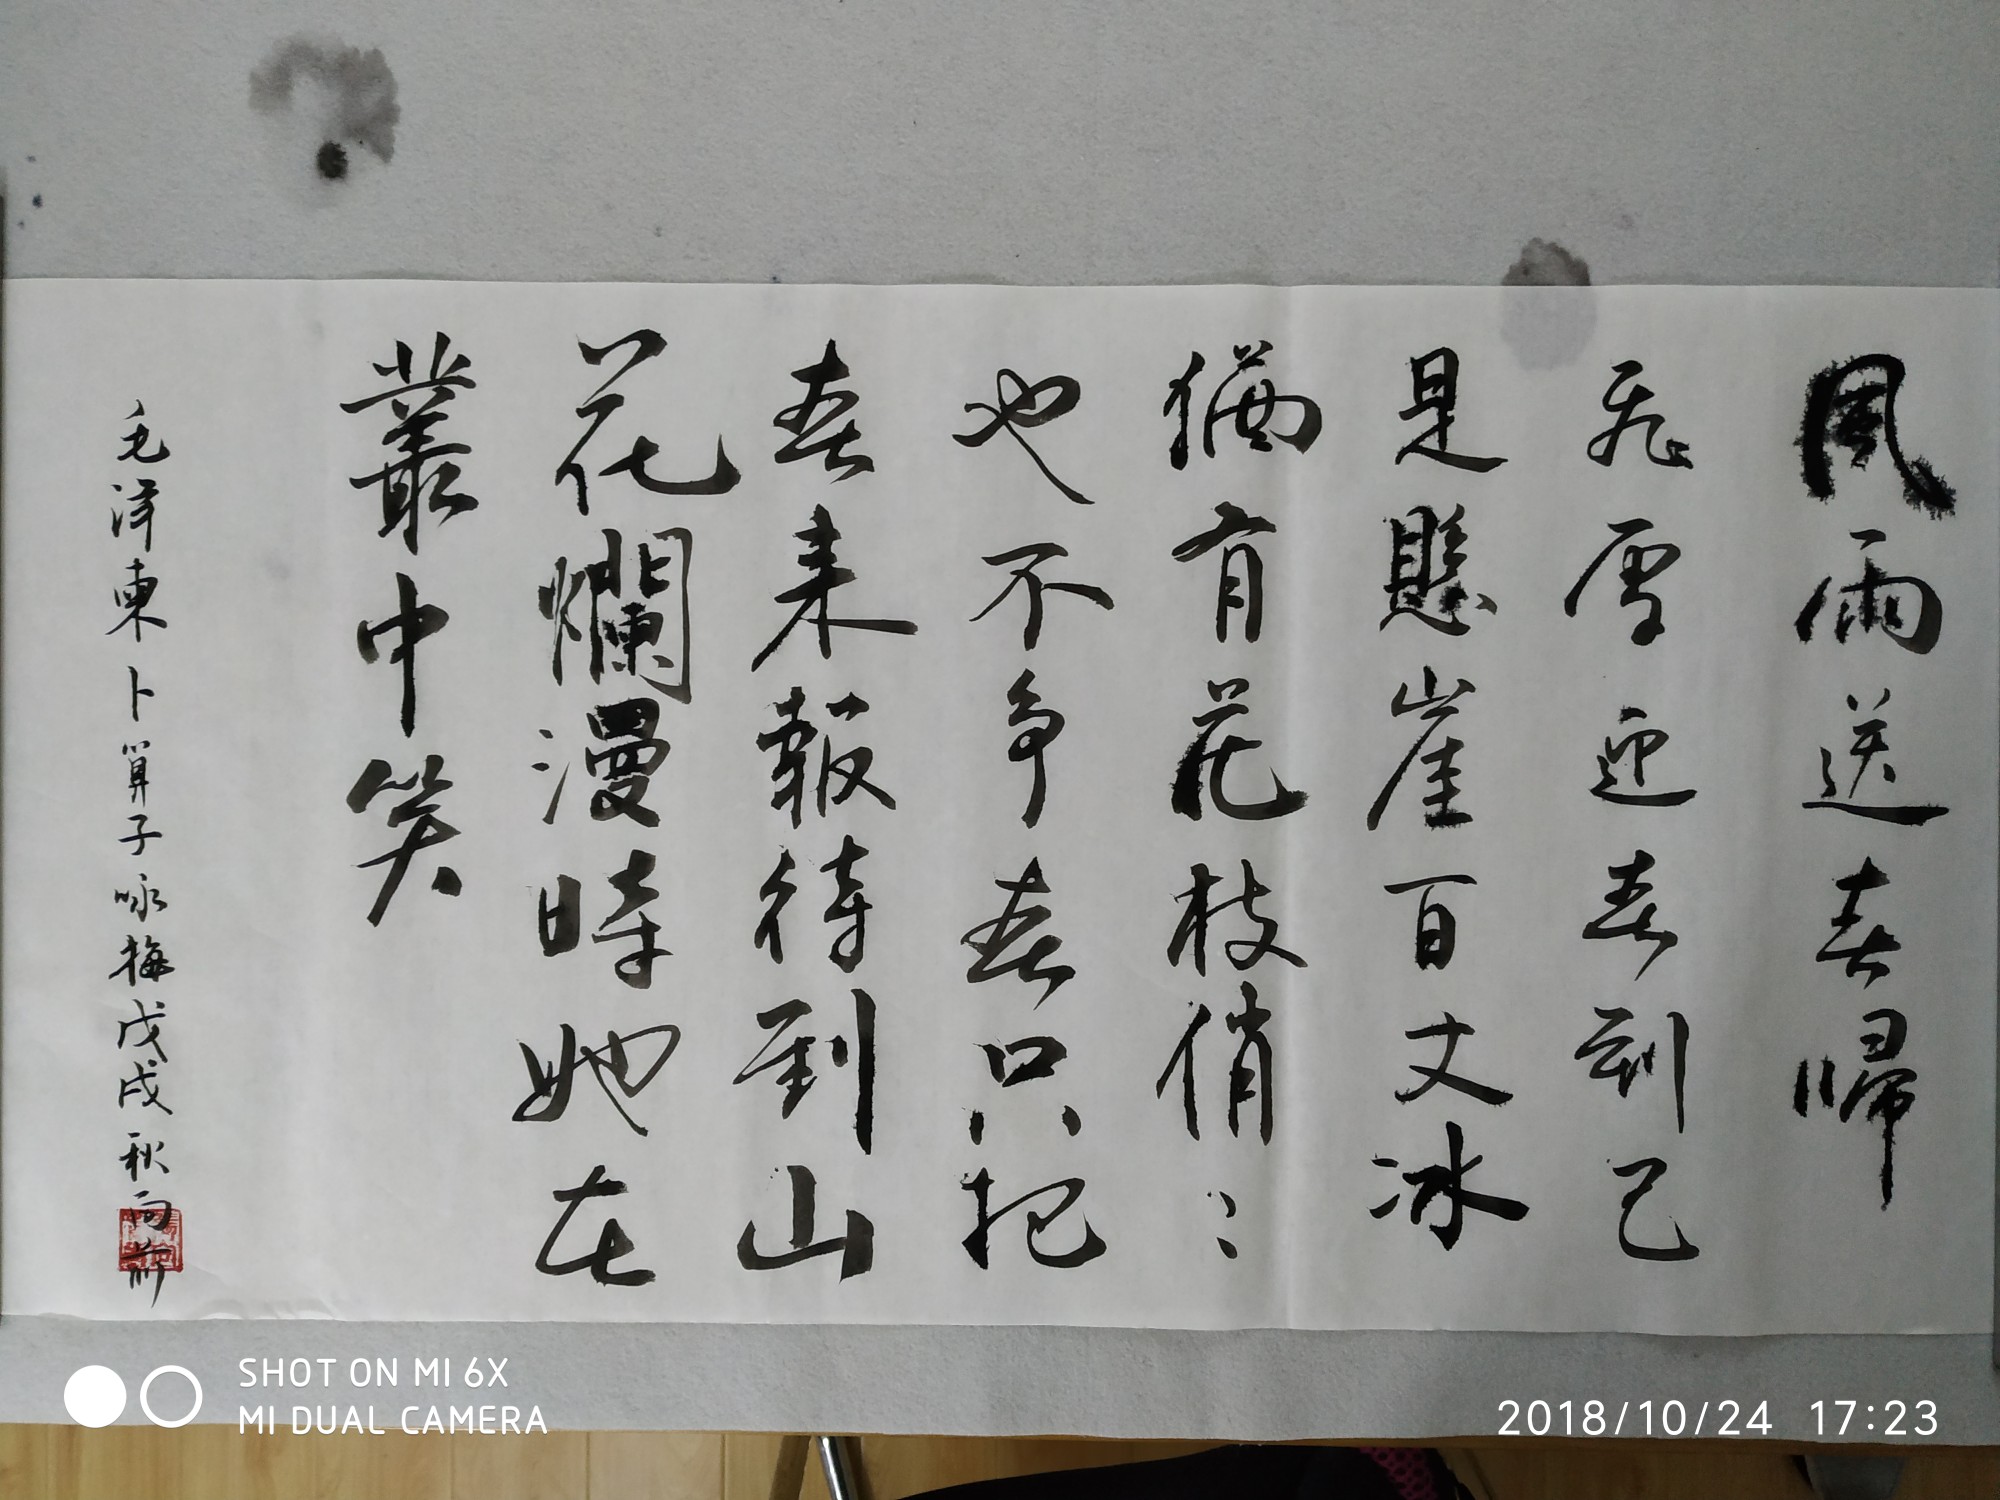 風雨送春歸
飛雪迎春到已
是懸崖百丈冰
猶有花枝俏〻
也不争春只把
春来報待到山
花爛漫時她在
叢中笑
毛澤東卜算子咏梅戊戌秋向前
SHOT ON MI 6X
MI DUAL CAMERA
2018/10/24 17:23